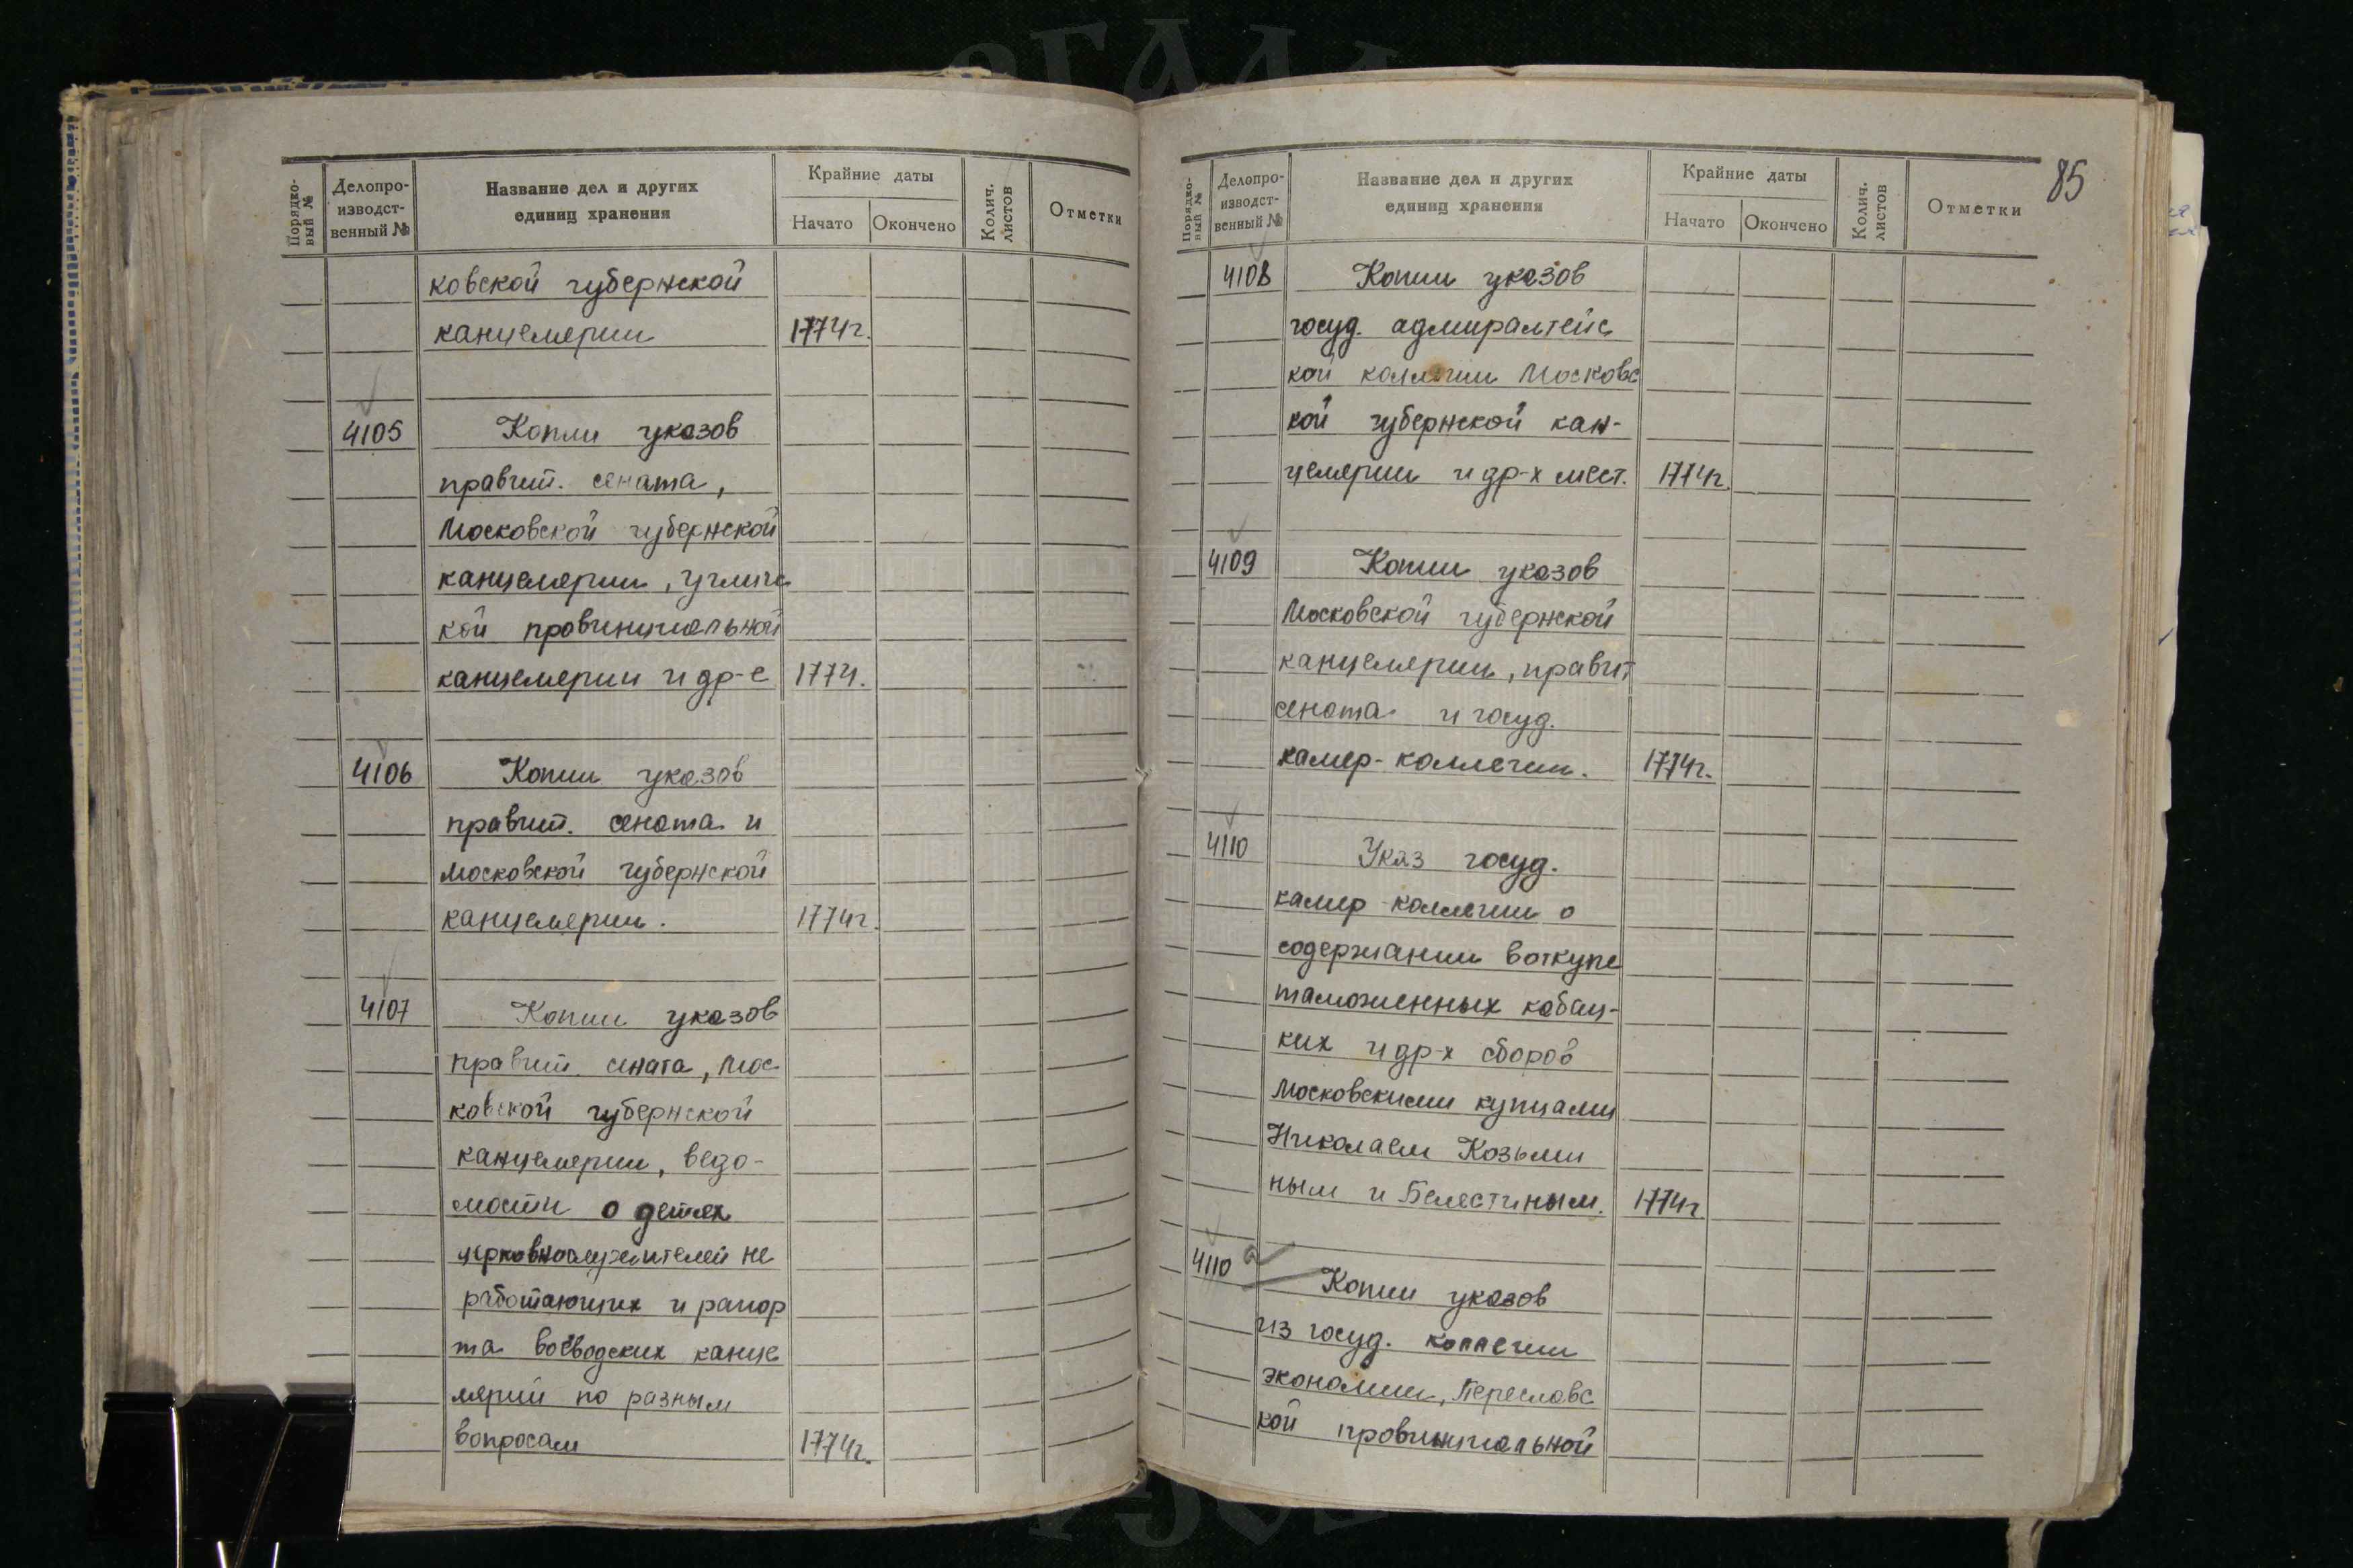 Порядко-
вый №
Делопро-
изводст-
венный №
Название дел и других
единиц хранения
Крайние даты
Начато
Окончено
Колич.
листов
Отметки
ковской губернской
канцелярии 1774г.
4105 Копии указов
правит. сената,
Московской губернской
канцелярии, угличс
кой провинциальной
канцелярии и др-е 1774.
4106 Копии указов
правит. сената и
московской губернской
канцелярии. 1774г.
4107 Копии указов
правит. сената, Мос
ковской губернской
канцелярии, ведо-
мости о детях
церковнослужителей не
работающих и рапор
та воеводских канце
лярий по разным
вопросам 1774г.
85
Порядко-
вый №
Делопро-
изводст-
венный №
Название дел и других
единиц хранения
Крайние даты
Начато
Окончено
Колич.
листов
Отметки
4108 Копии указов
госуд. адмиралтейс
кой коллегии Московс
кой губернской кан-
целярии и др-х мест. 1774г.
4109 Копии указов
Московской губернской
канцелярии, правит
сената и госуд.
камер-коллегии. 1774г.
4110 Указ госуд.
камер-коллегии о
содержании в откупе
таможенных кабац-
ких и др-х сборов
Московскими купцами
Николаем Козьми
ным и Белястиным. 1774г
4110 а Копии указов
из госуд. коллегии
экономии, Переславс
кой провинциальной